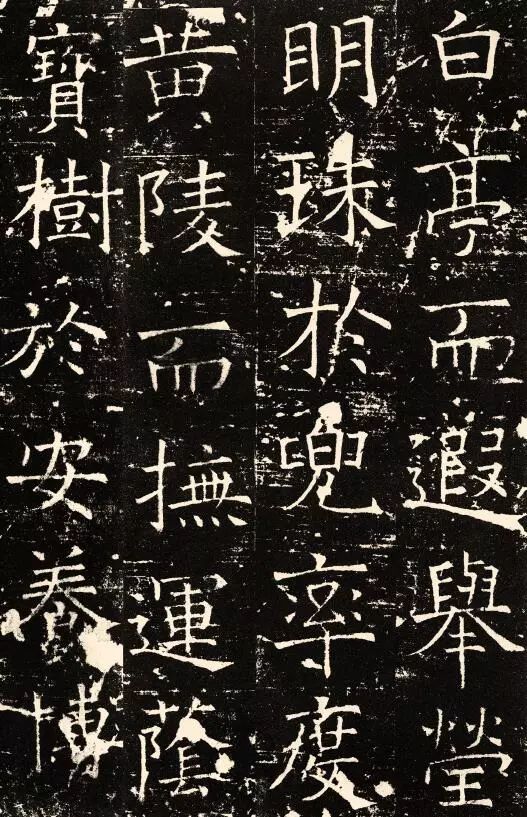 白亭而遐舉瑩
明珠於兜率度
黄陵而撫運蔭
寶樹於安養博